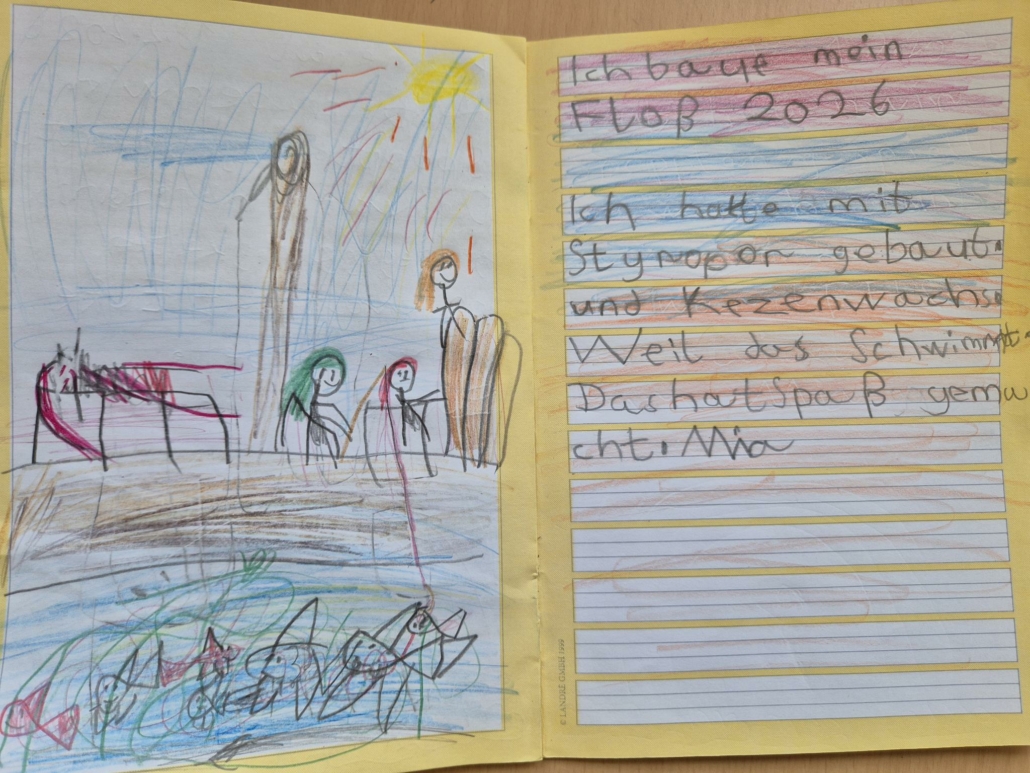 Ich baue mein
Floß 2026
Ich hatte mit
Styropor gebaut.
und Kezenwachs.
Weil das Schwimmt.
Das hat Spaß gema
cht. Mia
© LANDRÉ GMBH 1999